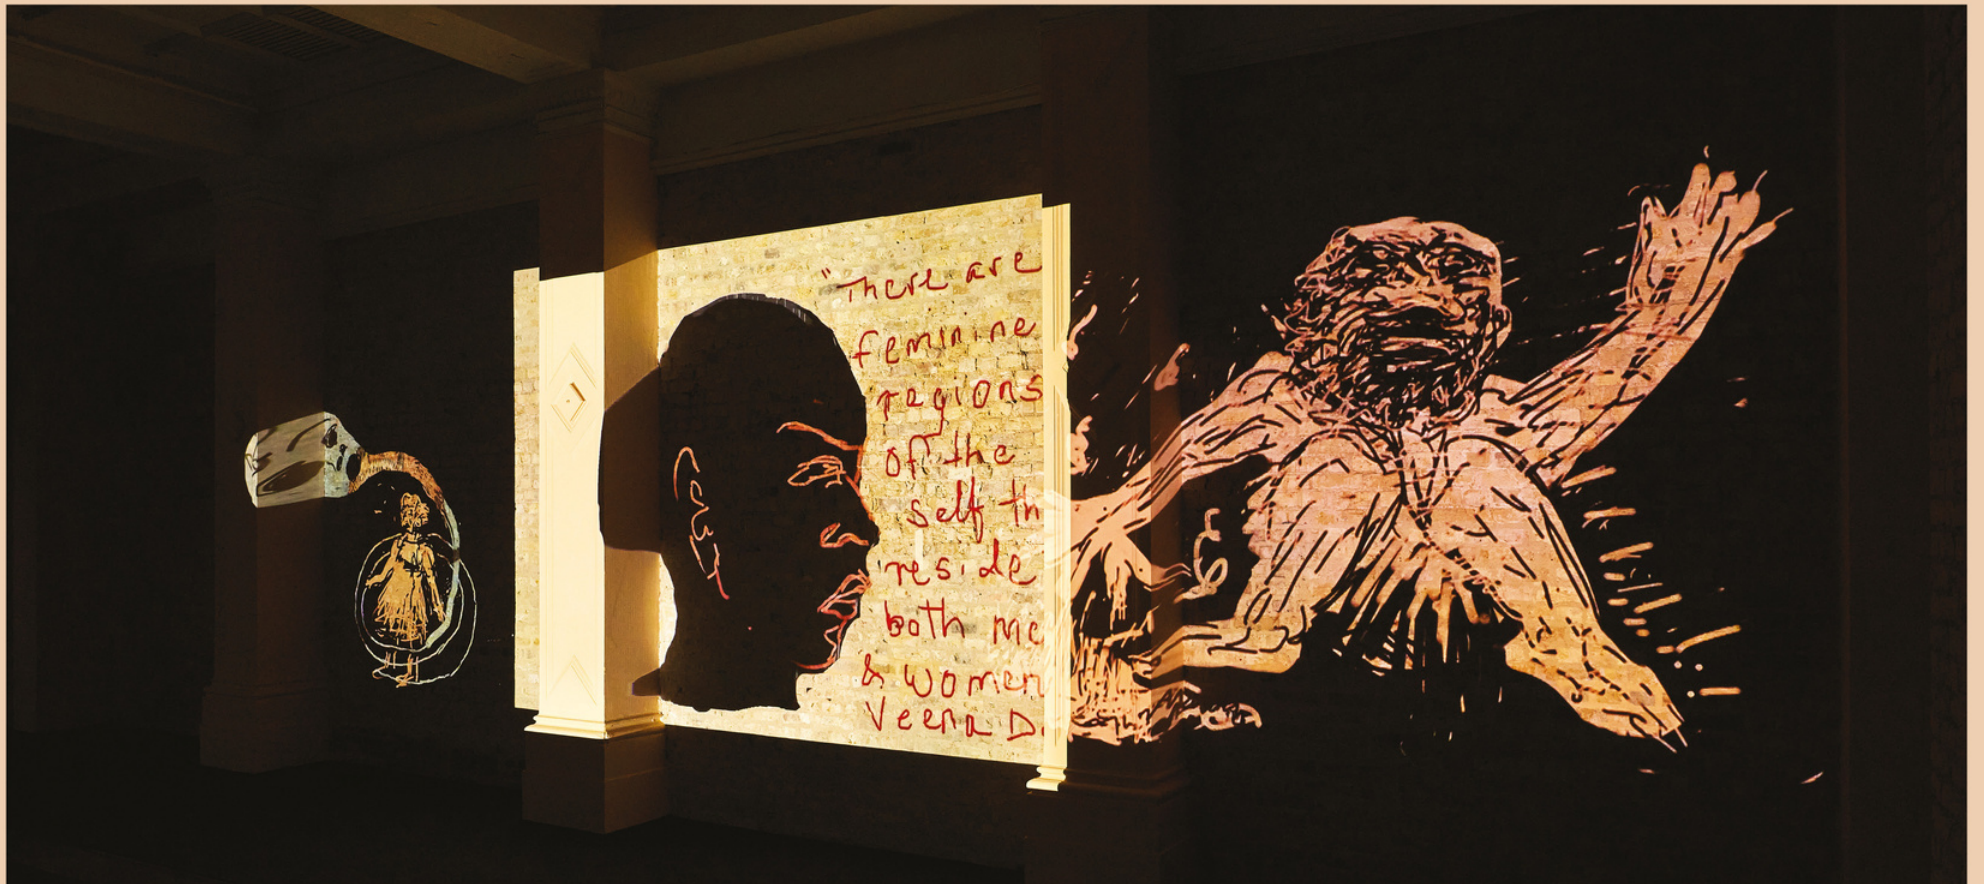 "There are
feminine
regions
of the
self th
reside
both me
& women
Veena D